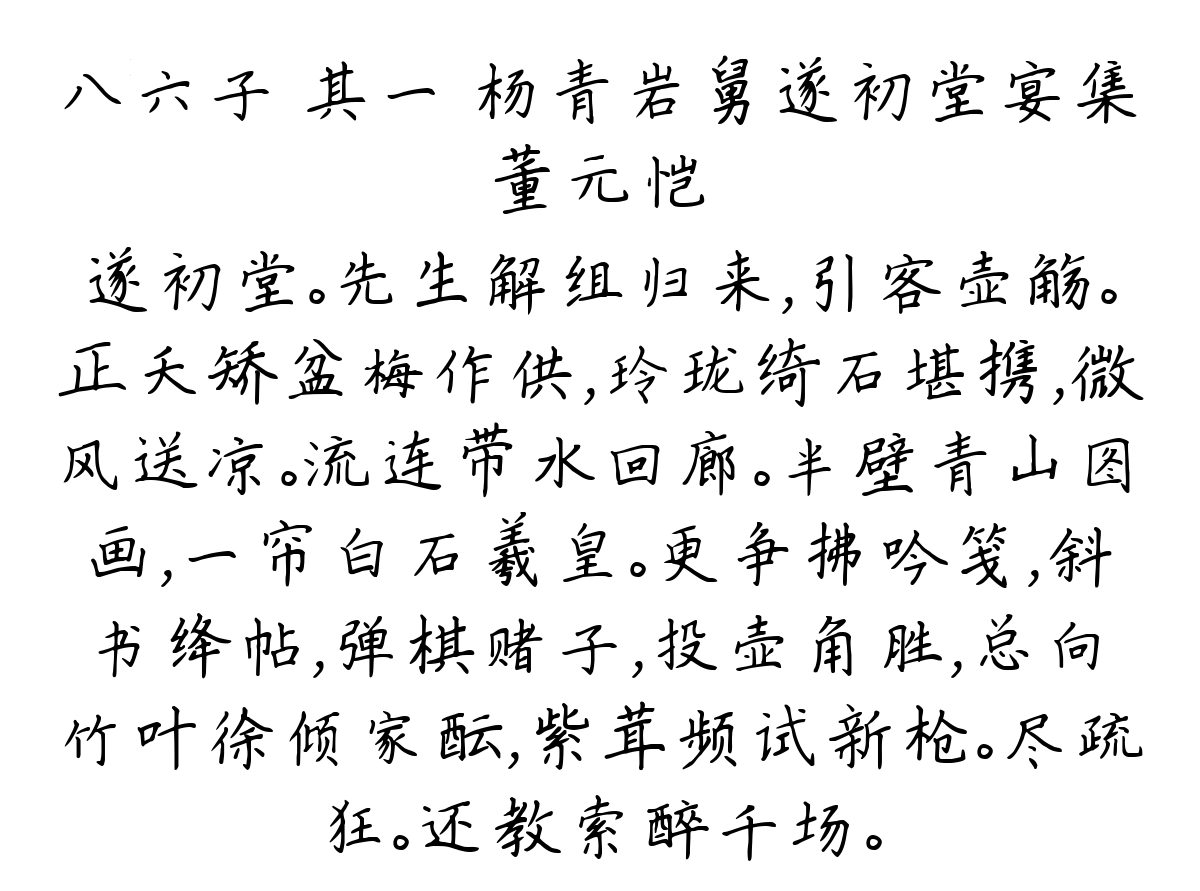 八六子 其一 杨青岩舅遂初堂宴集
董元恺
遂初堂。先生解组归来,引客壶觞。
正夭矫盆梅作供,玲珑绮石堪携,微
风送凉。流连带水回廊。半壁青山图
画,一帘白石羲皇。更争拂吟笺,斜
书绛帖,弹棋赌子,投壶角胜,总向
竹叶徐倾家酝,紫茸频试新枪。尽疏
狂。还教索醉千场。